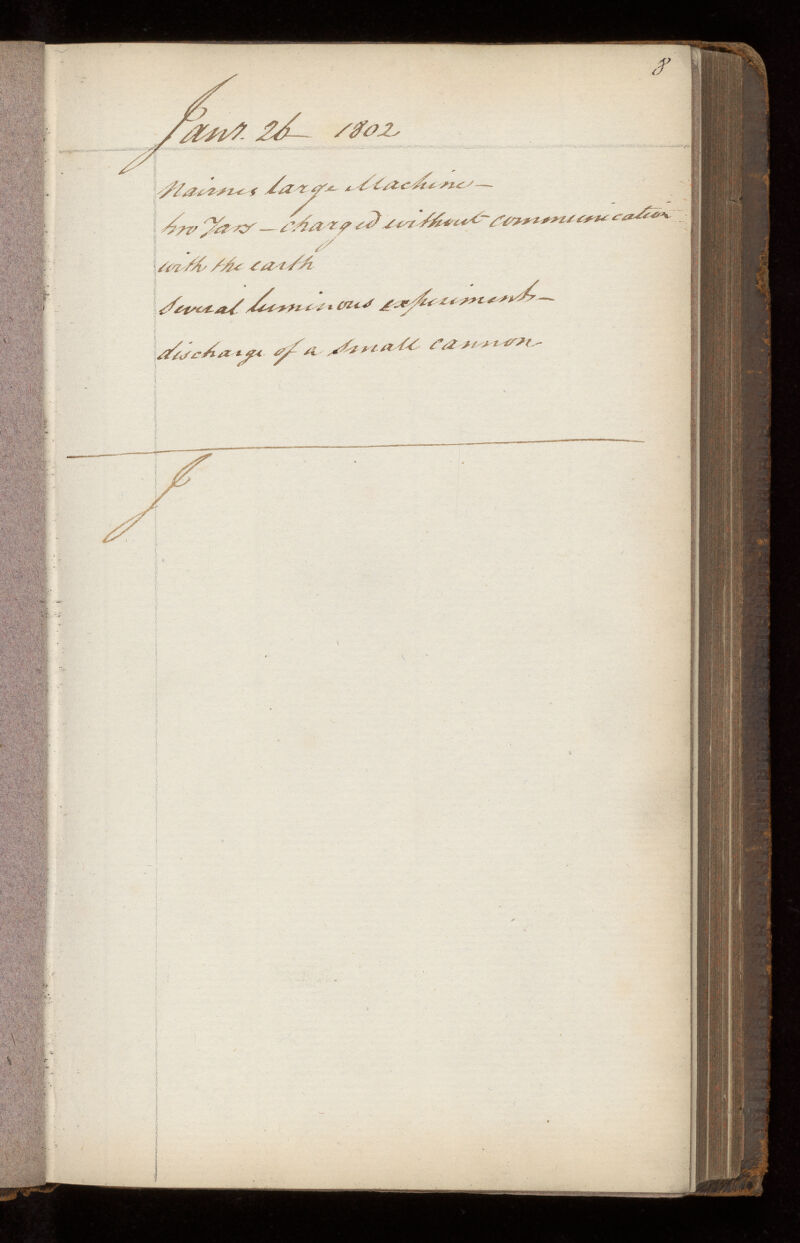 8
Janr. 26 1802
Nairnes large Machine —
two Jars — charged without communication
with the earth
Several luminous experiments —
discharge of a small cannon
J